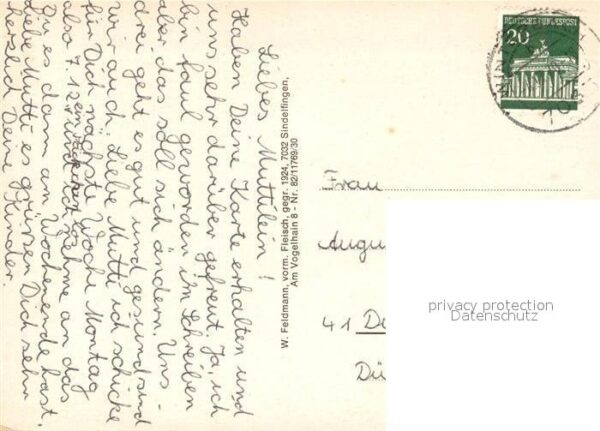 Liebes Muttilein!
Haben Deine Karte erhalten und
uns sehr darüber gefreut. Ja, ich
bin faul geworden im Schreiben
aber das soll sich ändern. Uns
drei geht es gut und gesund sind
wir auch. Liebe Mutti ich schicke
für Dich nächste Woche Montag
also 7.13 ein Päckchen los
und ich nehme an das
Du es dann am Wochenende hast.
Liebe Mutti es grüssen Dich sehr
herzlich Deine Kinder.
W. Feldmann, vorm. Fleisch, gegr. 1924, 7032 Sindelfingen,
Am Vogelhain 8 - Nr. 82/11769/30
DEUTSCHE BUNDESPOST
20
Frau
Augu
41 D
Dü
privacy protection
Datenschutz